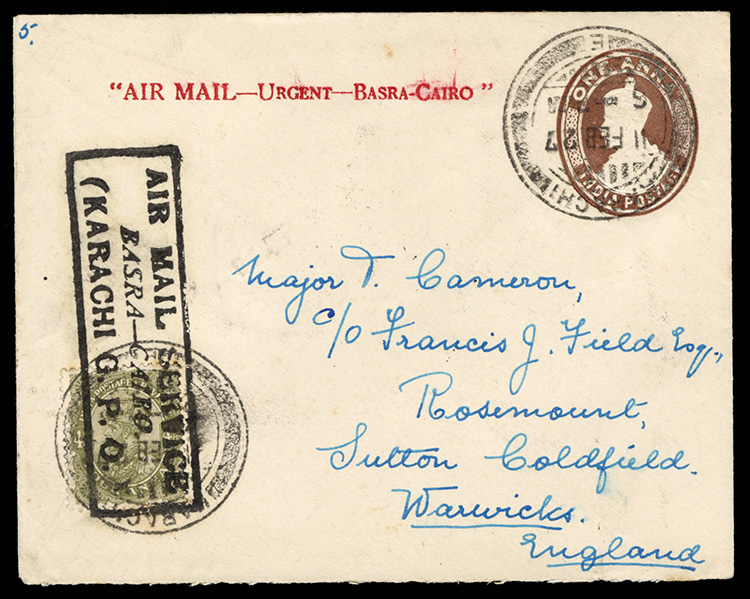 5.
"AIR MAIL—URGENT—BASRA-CAIRO"
ONE ANNA
INDIA POSTAGE
11 FEB 27
AIR MAIL SERVICE
BASRA—CAIRO.
(KARACHI G.P.O.)
Major T. Cameron,
c/o Francis J. Field Esq.,
Rosemount,
Sutton Coldfield.
Warwicks.
England